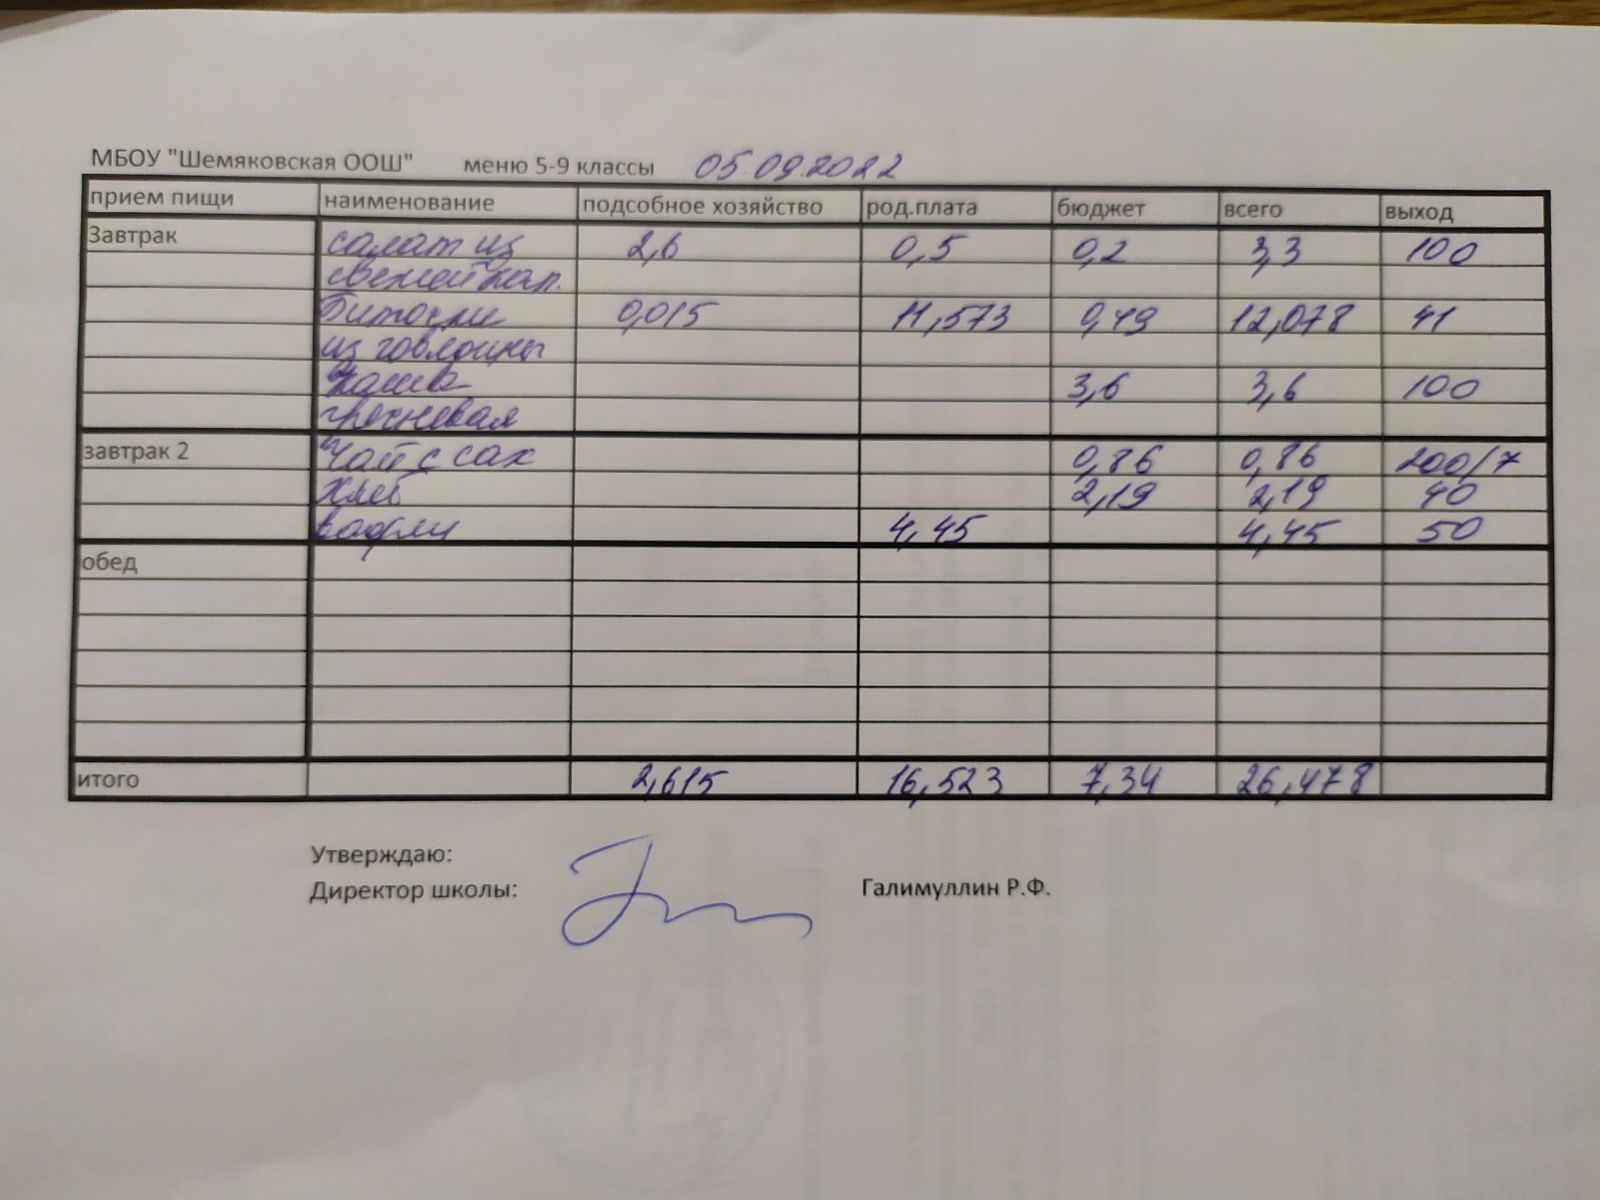 МБОУ "Шемяковская ООШ" меню 5-9 классы 05.09.2022
прием пищи наименование подсобное хозяйство род.плата бюджет всего выход
Завтрак салат из 2,6 0,5 0,2 3,3 100
свежей кап.
Биточки 0,015 11,573 0,49 12,078 41
из говядины
Каша 3,6 3,6 100
гречневая
завтрак 2 Чай с сах 0,86 0,86 200/7
Хлеб 2,19 2,19 40
вафли 4,45 4,45 50
обед
итого 2,615 16,523 7,34 26,478
Утверждаю:
Директор школы: Галимуллин Р.Ф.